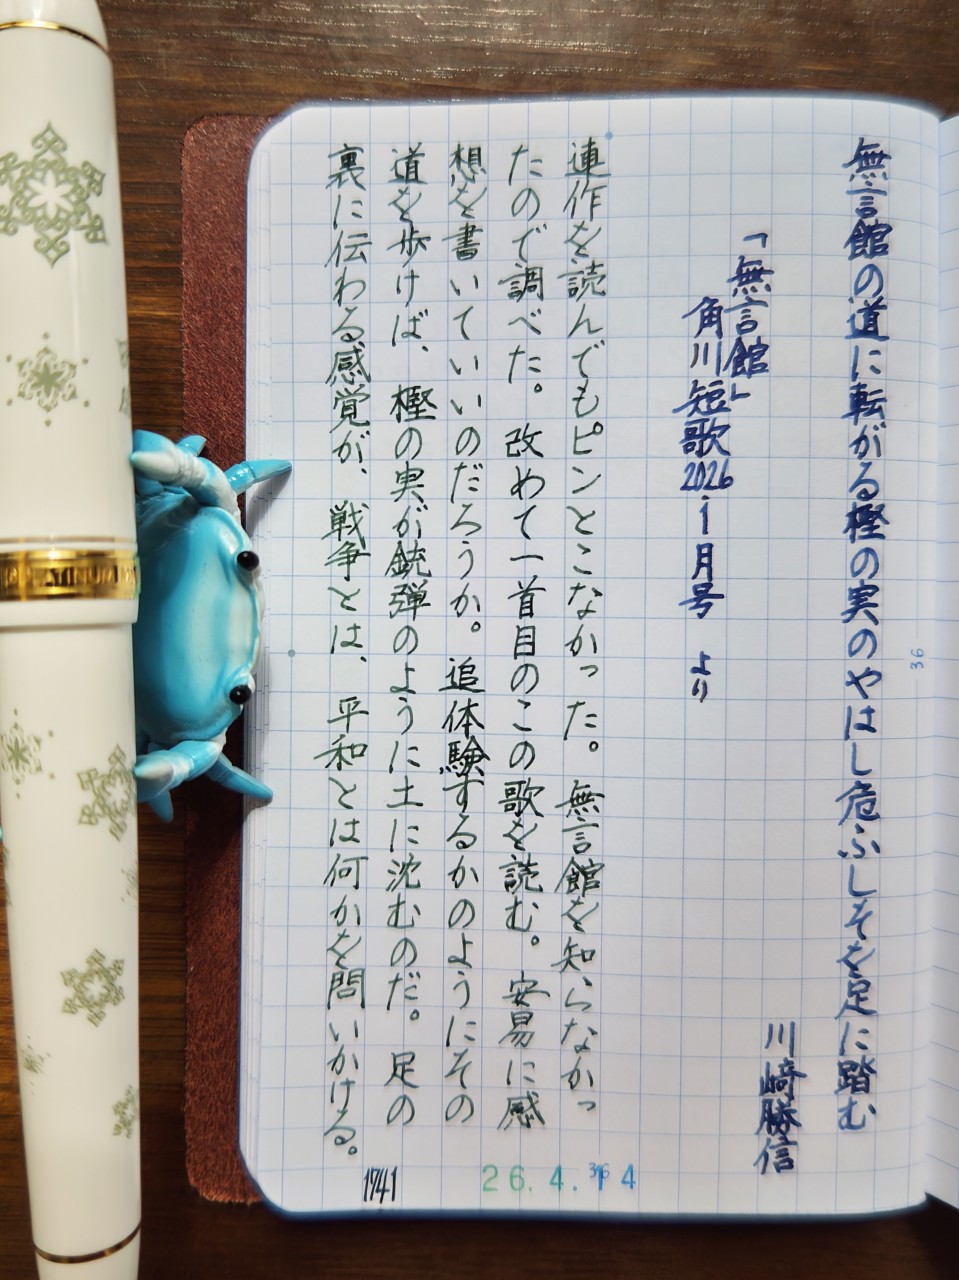 無言館の道に転がる樫の実のやはし危ふしそを足に踏む
川﨑勝信
「無言館」
角川短歌2026.1月号 より
連作を読んでもピンとこなかった。無言館を知らなかっ
たので調べた。改めて一首目のこの歌を読む。安易に感
想を書いていいのだろうか。追体験するかのようにその
道を歩けば、樫の実が銃弾のように土に沈むのだ。足の
裏に伝わる感覚が、戦争とは、平和とは何かを問いかける。
1741
26.4.14
36
36
PLATINUM